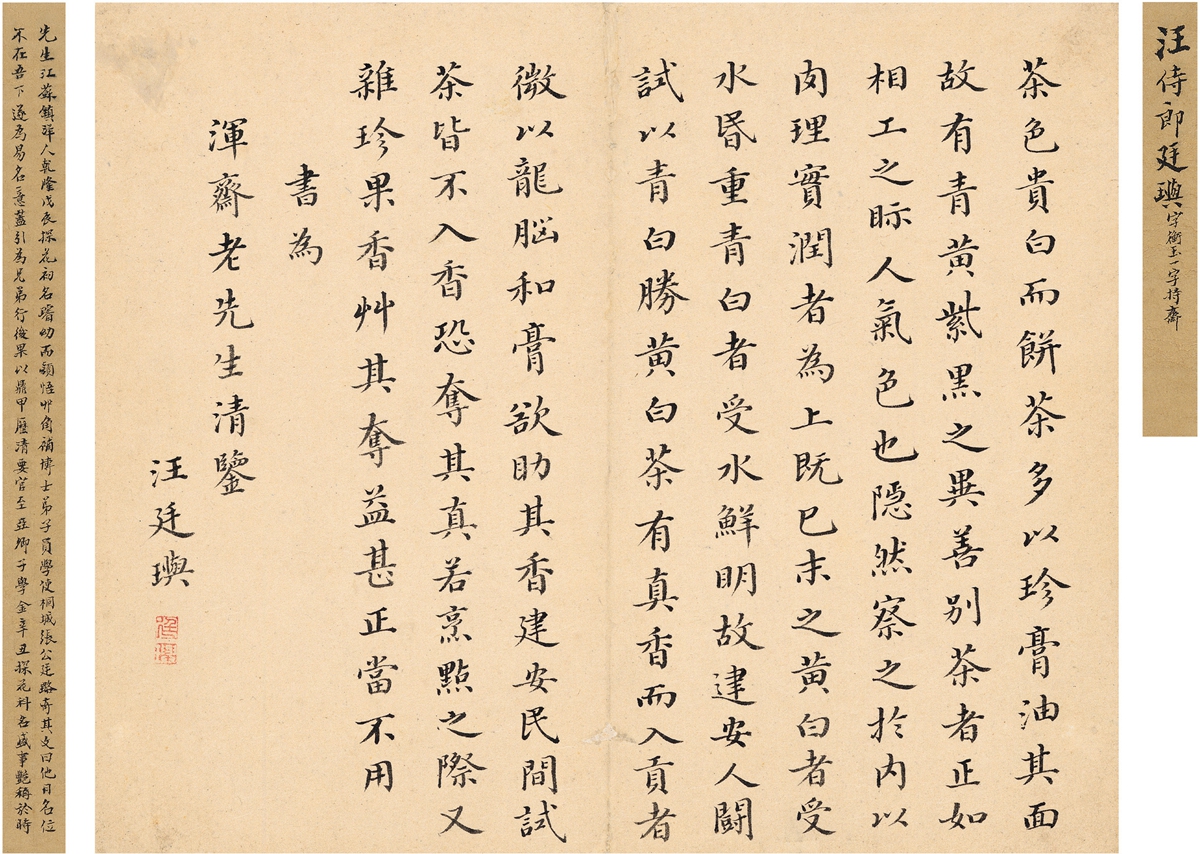 汪侍郎廷璵字衡玉一字持齋
茶色貴白而餅茶多以珍膏油其面
故有青黄紫黒之異善别茶者正如
相工之眎人氣色也隠然察之扵内以
肉理實潤者為上既已末之黄白者受
水昬重青白者受水鮮明故建安人闘
試以青白勝黄白茶有真香而入貢者
微以龍脳和膏欲助其香建安民間試
茶皆不入香恐奪其真若烹點之際又
雜珍果香艸其奪益甚正當不用
書為
渾齋老先生清鑒
汪廷璵
先生江蘇鎮洋人乾隆戊辰探花初名幼而穎悟丱角補博士弟子員學使桐城張公廷璐奇其文曰他日名位
不在吾下遂為易名意蓋引為兄弟行後果以鼎甲歷清要官至亞卿子學金辛丑探花科名盛事艷稱於時